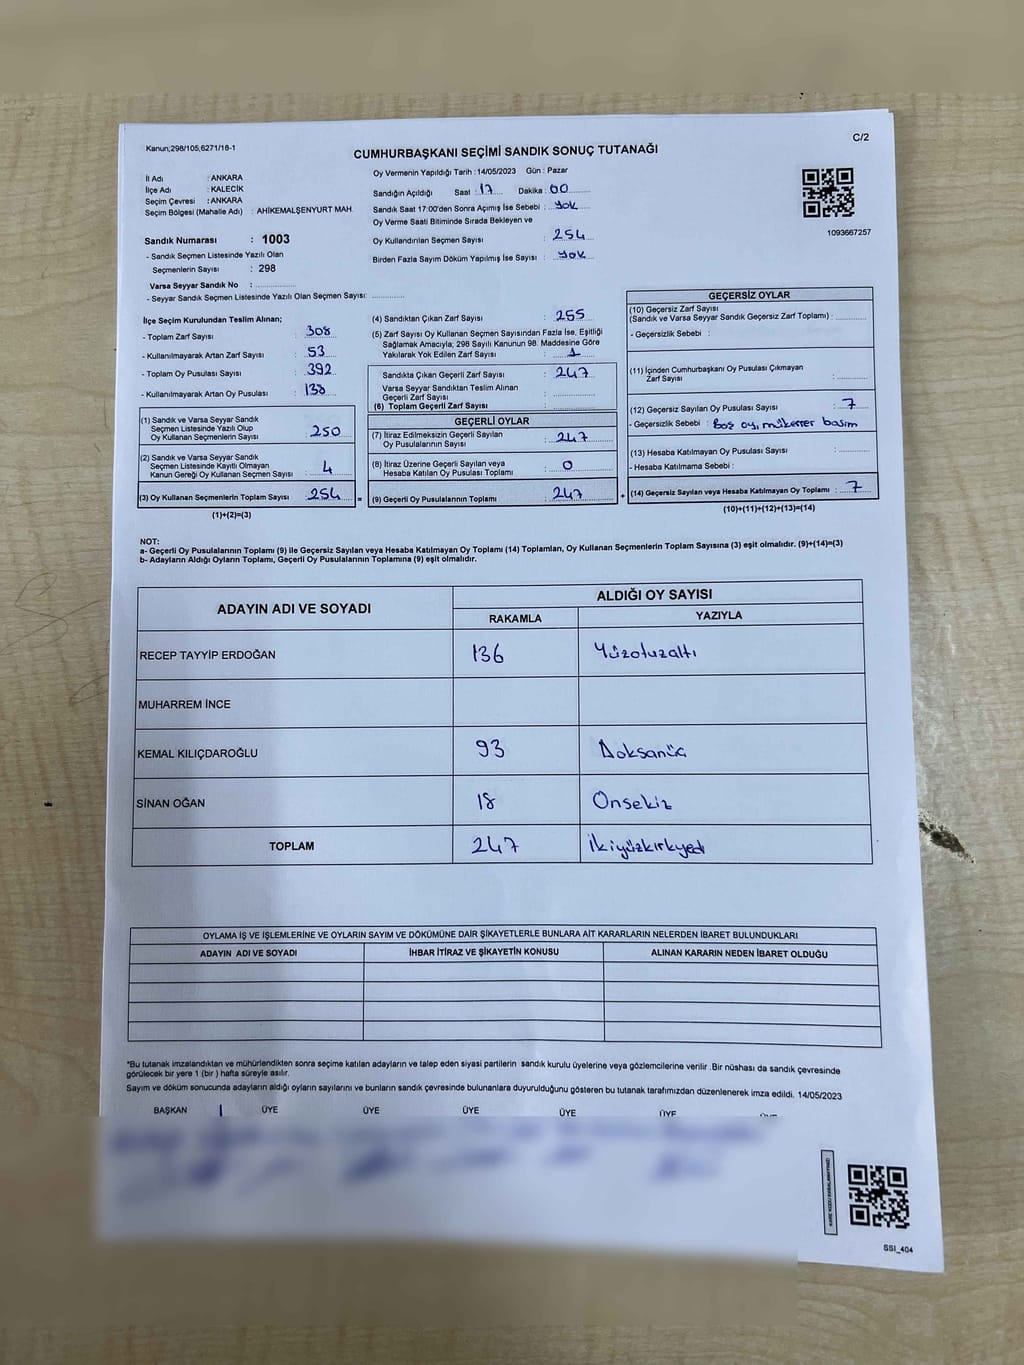 Kanun;298/105,6271/18-1
C/2
CUMHURBAŞKANI SEÇİMİ SANDIK SONUÇ TUTANAĞI
İl Adı : ANKARA
İlçe Adı : KALECİK
Seçim Çevresi : ANKARA
Seçim Bölgesi (Mahalle Adı) : AHİKEMALŞENYURT MAH.
Sandık Numarası : 1003
- Sandık Seçmen Listesinde Yazılı Olan
Seçmenlerin Sayısı : 298
Varsa Seyyar Sandık No :
- Seyyar Sandık Seçmen Listesinde Yazılı Olan Seçmen Sayısı:
Oy Vermenin Yapıldığı Tarih : 14/05/2023 Gün : Pazar
Sandığın Açıldığı Saat : 17 Dakika : 00
Sandık Saat 17:00'den Sonra Açımış İse Sebebi : Yok
Oy Verme Saati Bitiminde Sırada Bekleyen ve
Oy Kullandırılan Seçmen Sayısı : 254
Birden Fazla Sayım Döküm Yapılmış İse Sayısı : Yok
1093667257
İlçe Seçim Kurulundan Teslim Alınan;
- Toplam Zarf Sayısı : 308
- Kullanılmayarak Artan Zarf Sayısı : 53
- Toplam Oy Pusulası Sayısı : 392
- Kullanılmayarak Artan Oy Pusulası : 138
(1) Sandık ve Varsa Seyyar Sandık
Seçmen Listesinde Yazılı Olup
Oy Kullanan Seçmenlerin Sayısı : 250
(2) Sandık ve Varsa Seyyar Sandık
Seçmen Listesinde Kayıtlı Olmayan
Kanun Gereği Oy Kullanan Seçmen Sayısı : 4
(3) Oy Kullanan Seçmenlerin Toplam Sayısı : 254 =
(1)+(2)=(3)
(4) Sandıktan Çıkan Zarf Sayısı : 255
(5) Zarf Sayısı Oy Kullanan Seçmen Sayısından Fazla İse, Eşitliği
Sağlamak Amacıyla; 298 Sayılı Kanunun 98. Maddesine Göre
Yakılarak Yok Edilen Zarf Sayısı : 1
Sandıkta Çıkan Geçerli Zarf Sayısı : 247
Varsa Seyyar Sandıktan Teslim Alınan
Geçerli Zarf Sayısı :
(6) Toplam Geçerli Zarf Sayısı :
GEÇERLİ OYLAR
(7) İtiraz Edilmeksizin Geçerli Sayılan
Oy Pusulalarının Sayısı : 247
(8) İtiraz Üzerine Geçerli Sayılan veya
Hesaba Katılan Oy Pusulası Toplamı : 0
(9) Geçerli Oy Pusulalarının Toplamı : 247 +
GEÇERSİZ OYLAR
(10) Geçersiz Zarf Sayısı
(Sandık ve Varsa Seyyar Sandık Geçersiz Zarf Toplamı) :
- Geçersizlik Sebebi :
(11) İçinden Cumhurbaşkanı Oy Pusulası Çıkmayan
Zarf Sayısı :
(12) Geçersiz Sayılan Oy Pusulası Sayısı : 7
- Geçersizlik Sebebi : Boş oy, mükerrer basım
(13) Hesaba Katılmayan Oy Pusulası Sayısı :
- Hesaba Katılmama Sebebi :
(14) Geçersiz Sayılan veya Hesaba Katılmayan Oy Toplamı : 7
(10)+(11)+(12)+(13)=(14)
NOT:
a- Geçerli Oy Pusulalarının Toplamı (9) ile Geçersiz Sayılan veya Hesaba Katılmayan Oy Toplamı (14) Toplamları, Oy Kullanan Seçmenlerin Toplam Sayısına (3) eşit olmalıdır. (9)+(14)=(3)
b- Adayların Aldığı Oyların Toplamı, Geçerli Oy Pusulalarının Toplamına (9) eşit olmalıdır.
ADAYIN ADI VE SOYADI ALDIĞI OY SAYISI
RAKAMLA YAZIYLA
RECEP TAYYİP ERDOĞAN 136 Yüzotuzaltı
MUHARREM İNCE
KEMAL KILIÇDAROĞLU 93 Doksanüç
SİNAN OĞAN 18 Onsekiz
TOPLAM 247 İkiyüzkırkyedi
OYLAMA İŞ VE İŞLEMLERİNE VE OYLARIN SAYIM VE DÖKÜMÜNE DAİR ŞİKAYETLERLE BUNLARA AİT KARARLARIN NELERDEN İBARET BULUNDUKLARI
ADAYIN ADI VE SOYADI İHBAR İTİRAZ VE ŞİKAYETİN KONUSU ALINAN KARARIN NEDEN İBARET OLDUĞU
*Bu tutanak imzalandıktan ve mühürlendikten sonra seçime katılan adayların ve talep eden siyasi partilerin sandık kurulu üyelerine veya gözlemcilerine verilir .Bir nüshası da sandık çevresinde
görülecek bir yere 1 (bir ) hafta süreyle asılır.
Sayım ve döküm sonucunda adayların aldığı oyların sayılarını ve bunların sandık çevresinde bulunanlara duyurulduğunu gösteren bu tutanak tarafımızdan düzenlenerek imza edildi. 14/05/2023
BAŞKAN ÜYE ÜYE ÜYE ÜYE ÜYE
SSI_404